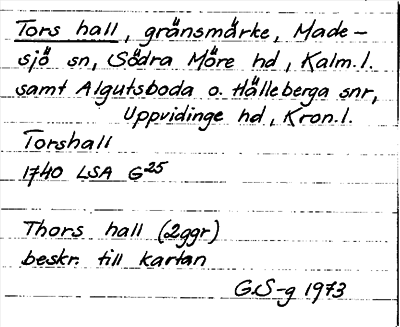 Tors hall, gränsmärke, Made-
sjö sn, Södra Möre hd, Kalm. l.
samt Algutsboda o. Hälleberga snr,
Uppvidinge hd, Kron. l.
Torshall
1740 LSA G25
Thors hall (2ggr)
beskr. till kartan
G.S-g 1973